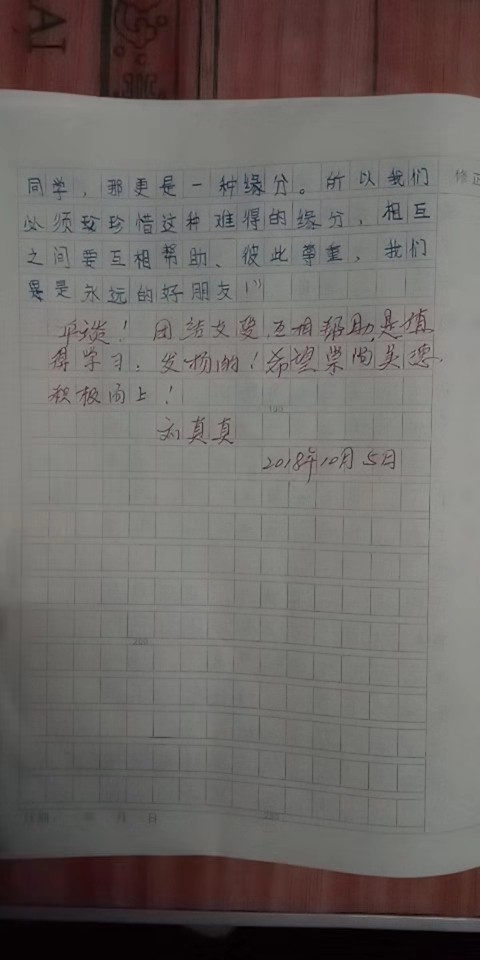 AI
修正
同学，那更是一种缘分。所以我们
必须珍珍惜这种难得的缘分，相互
之间要互相帮助、彼此尊重，我们
是是永远的好朋友！
团结友爱，互相帮助，是值
得学习、发扬的！希望
积极向上！
刘真真
2018年10月5日
年 月 日